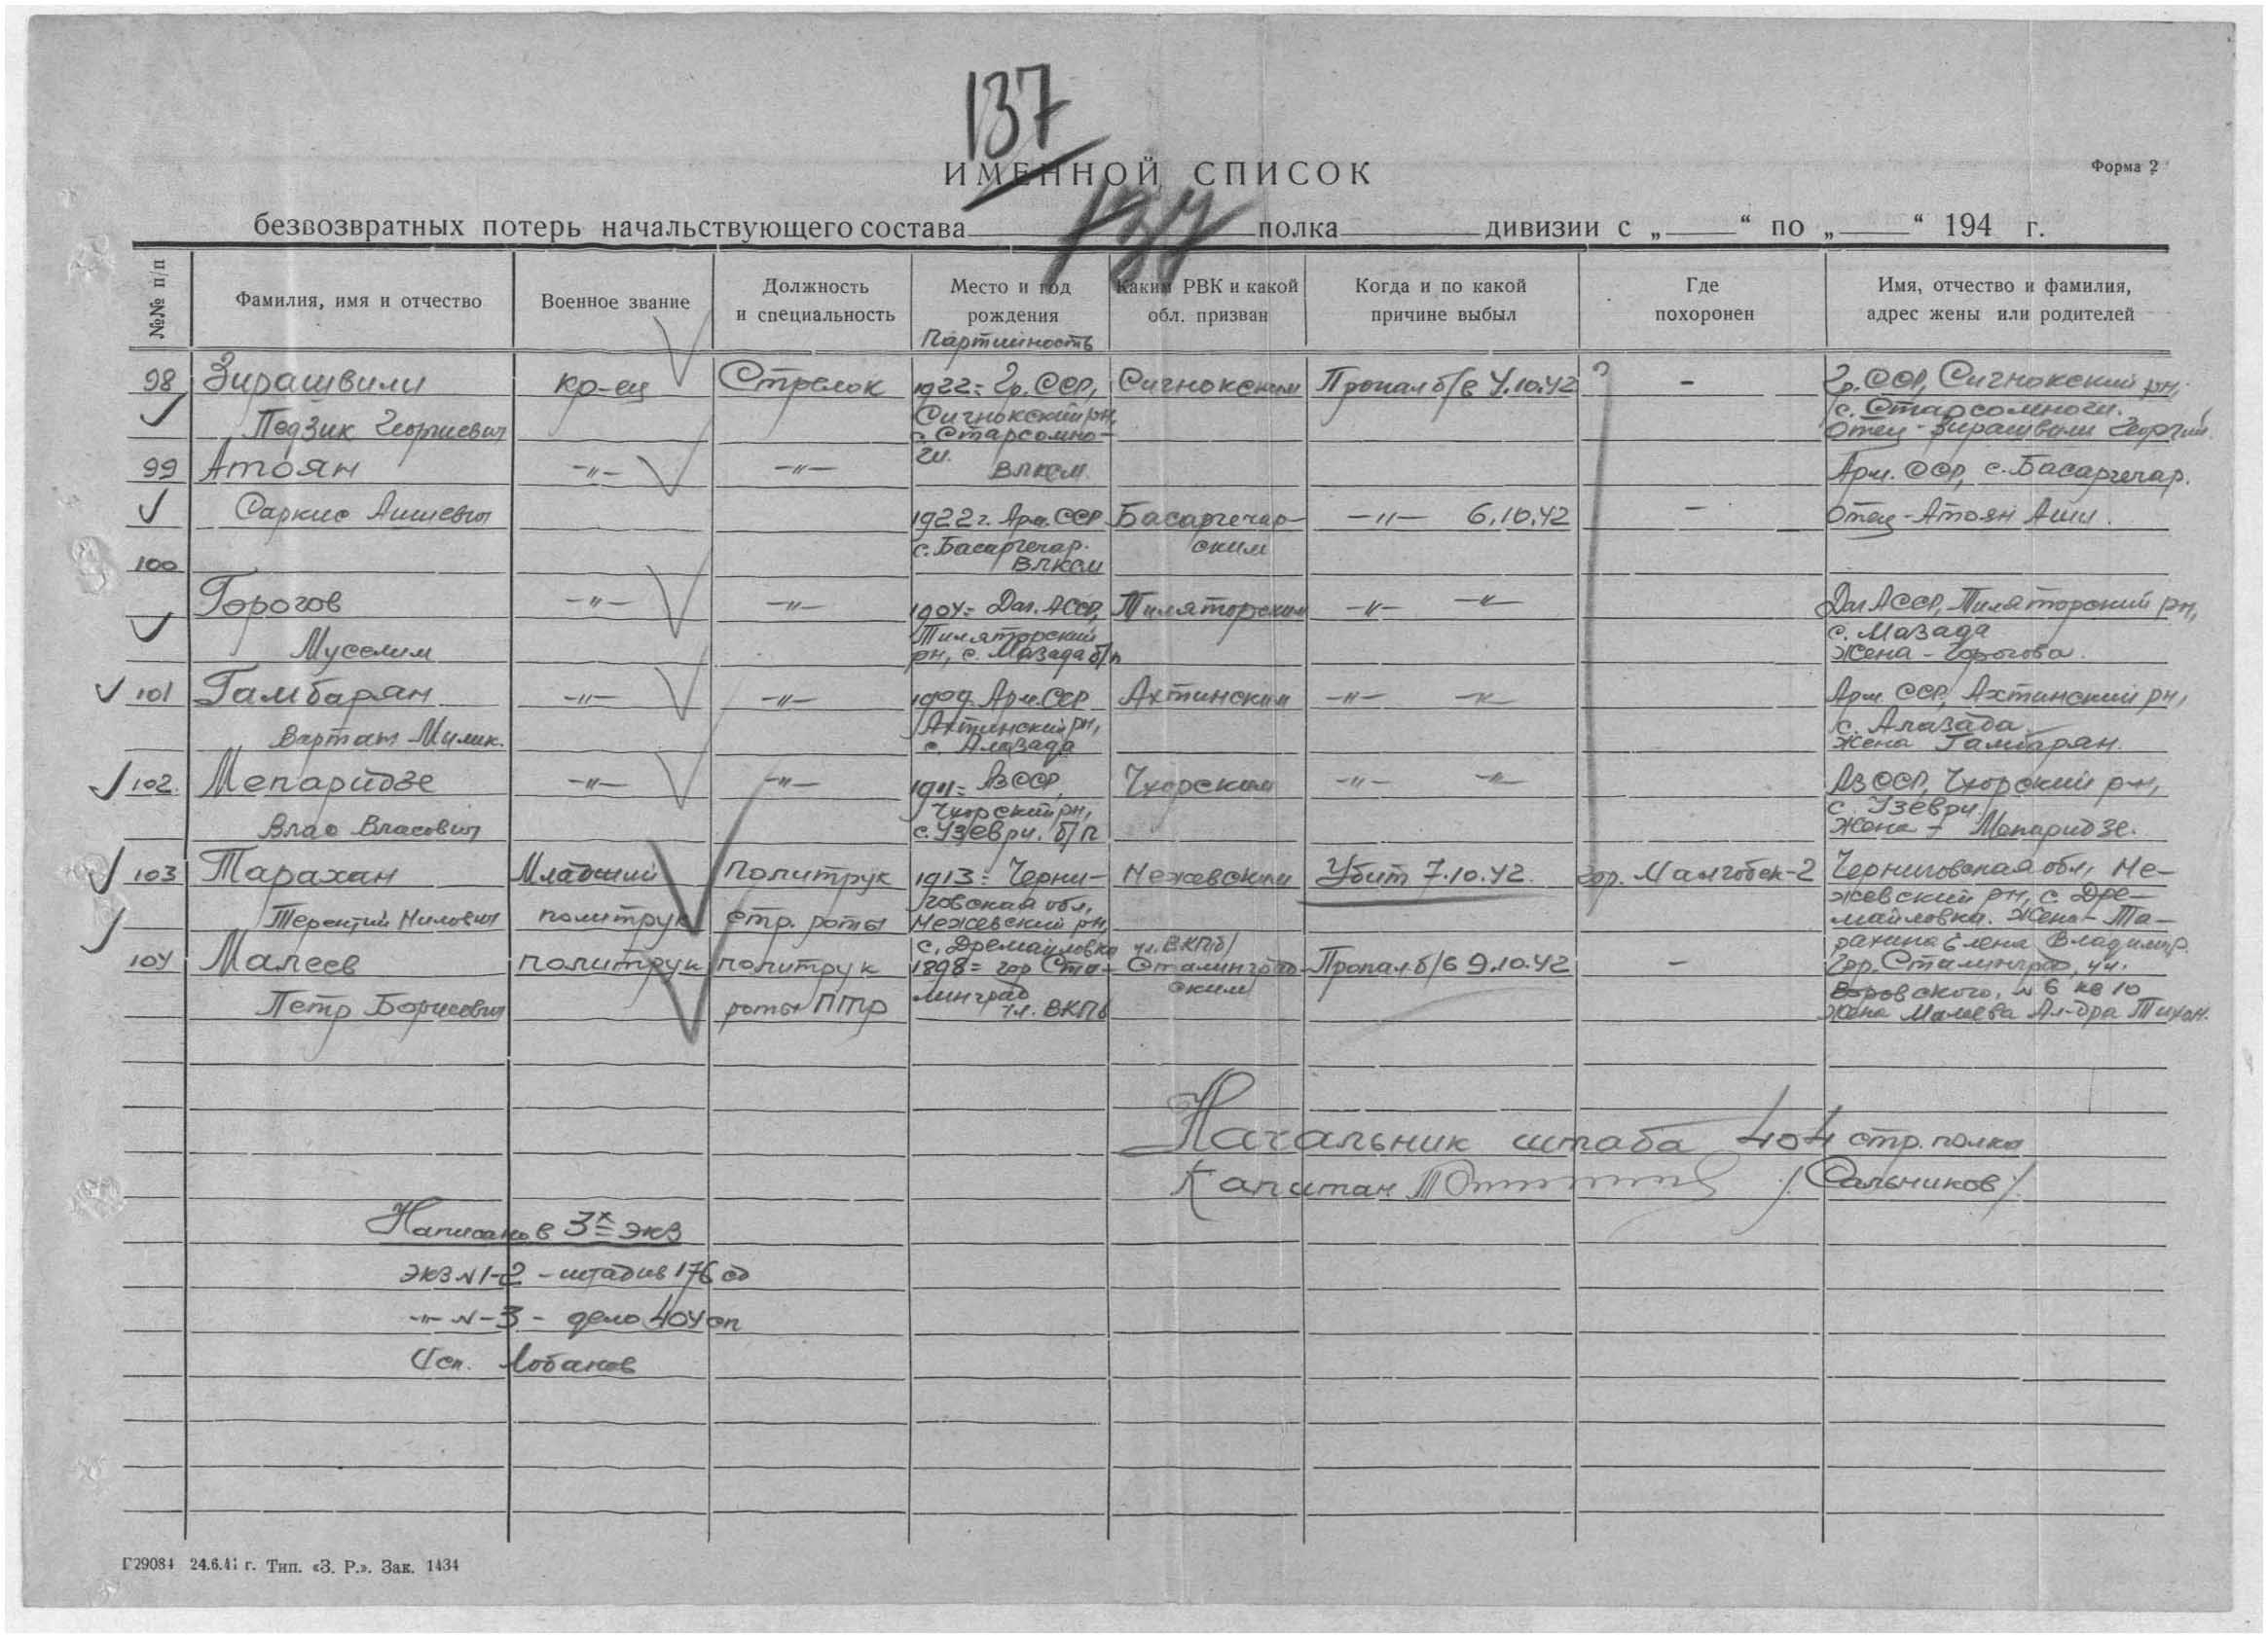 137
ИМЕННОЙ СПИСОК
Форма 2
безвозвратных потерь начальствующего состава полка дивизии с „ “ по „ “ 194 г.
№№ п/п
Фамилия, имя и отчество
Военное звание
Должность и специальность
Место и год рождения
Партийность
Каким РВК и какой обл. призван
Когда и по какой причине выбыл
Где похоронен
Имя, отчество и фамилия, адрес жены или родителей
98 Зирашвили кр-ец Стрелок 1922 г. Гр. ССР, Сигнокским Пропал б/в 4.10.42 – Гр. ССР, Сигнокский рн,
Сигнокский рн, с. Старсомноги.
Педзик Георгиевич с. Старсомно- Отец - Зирашвили Георгий
ги. ВЛКСМ
99 Атоян -"- -"- Арм. ССР, с. Басаргечар.
Саркис Ашиевич 1922 г. Арм. ССР Басаргечар- -"- 6.10.42 – Отец - Атоян Аши.
с. Басаргечар. ским
ВЛКСМ
100
Горогов -"- -"- 1904 г. Даг. АССР, Тиляторским -"- -"- Даг АССР, Тиляторский рн,
Тиляторский с. Мазада
Муселим рн, с. Мазада б/п Жена - Горогова.
101 Гамбарян -"- -"- 1909 Арм. ССР Ахтинским -"- -"- Арм ССР, Ахтинский рн,
Ахтинский рн, с. Алазада
Вартан Милик. с. Алазада Жена Гамбарян.
102. Мепаридзе -"- -"- 1911 г. АзССР, Чхорским -"- -"- АзССР, Чхорский р-н,
Чхорский рн, с. Узеври
Влас Власович с. Узеври. б/п Жена - Мепаридзе.
103 Тарахан Младший политрук 1913 г. Черни- Нежевским Убит 7.10.42. гор. Малгобек-2 Черниговская обл, Не-
говская обл, жевский рн, с. Дре-
Терентий Нилович политрук стр. роты Нежевский рн, майловка. Жена - Та-
с. Дремайловка чл. ВКП(б) рахина Елена Владимир.
104 Малеев политрук политрук 1898 г. гор Ста- Сталинград- Пропал б/в 9.10.42 – Гор. Сталинград, ул.
линград ским Воровского, № 6 кв 10
Петр Борисович роты ПТР чл. ВКПб Жена Малеева Ал-дра Тихон.
Начальник штаба 404 стр. полка
Капитан /Сальников/
Написано в 3х экз
экз № 1-2 - штадив 176 сд
-"- № - 3 - дело 404 сп
Исп. Лобанов
Г29084 24.6.41 г. Тип. «З. Р.». Зак. 1434